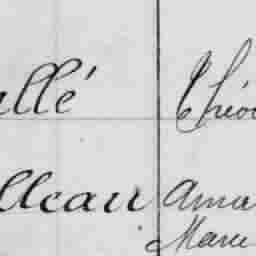 allé Théo
lleau Ama
Marie